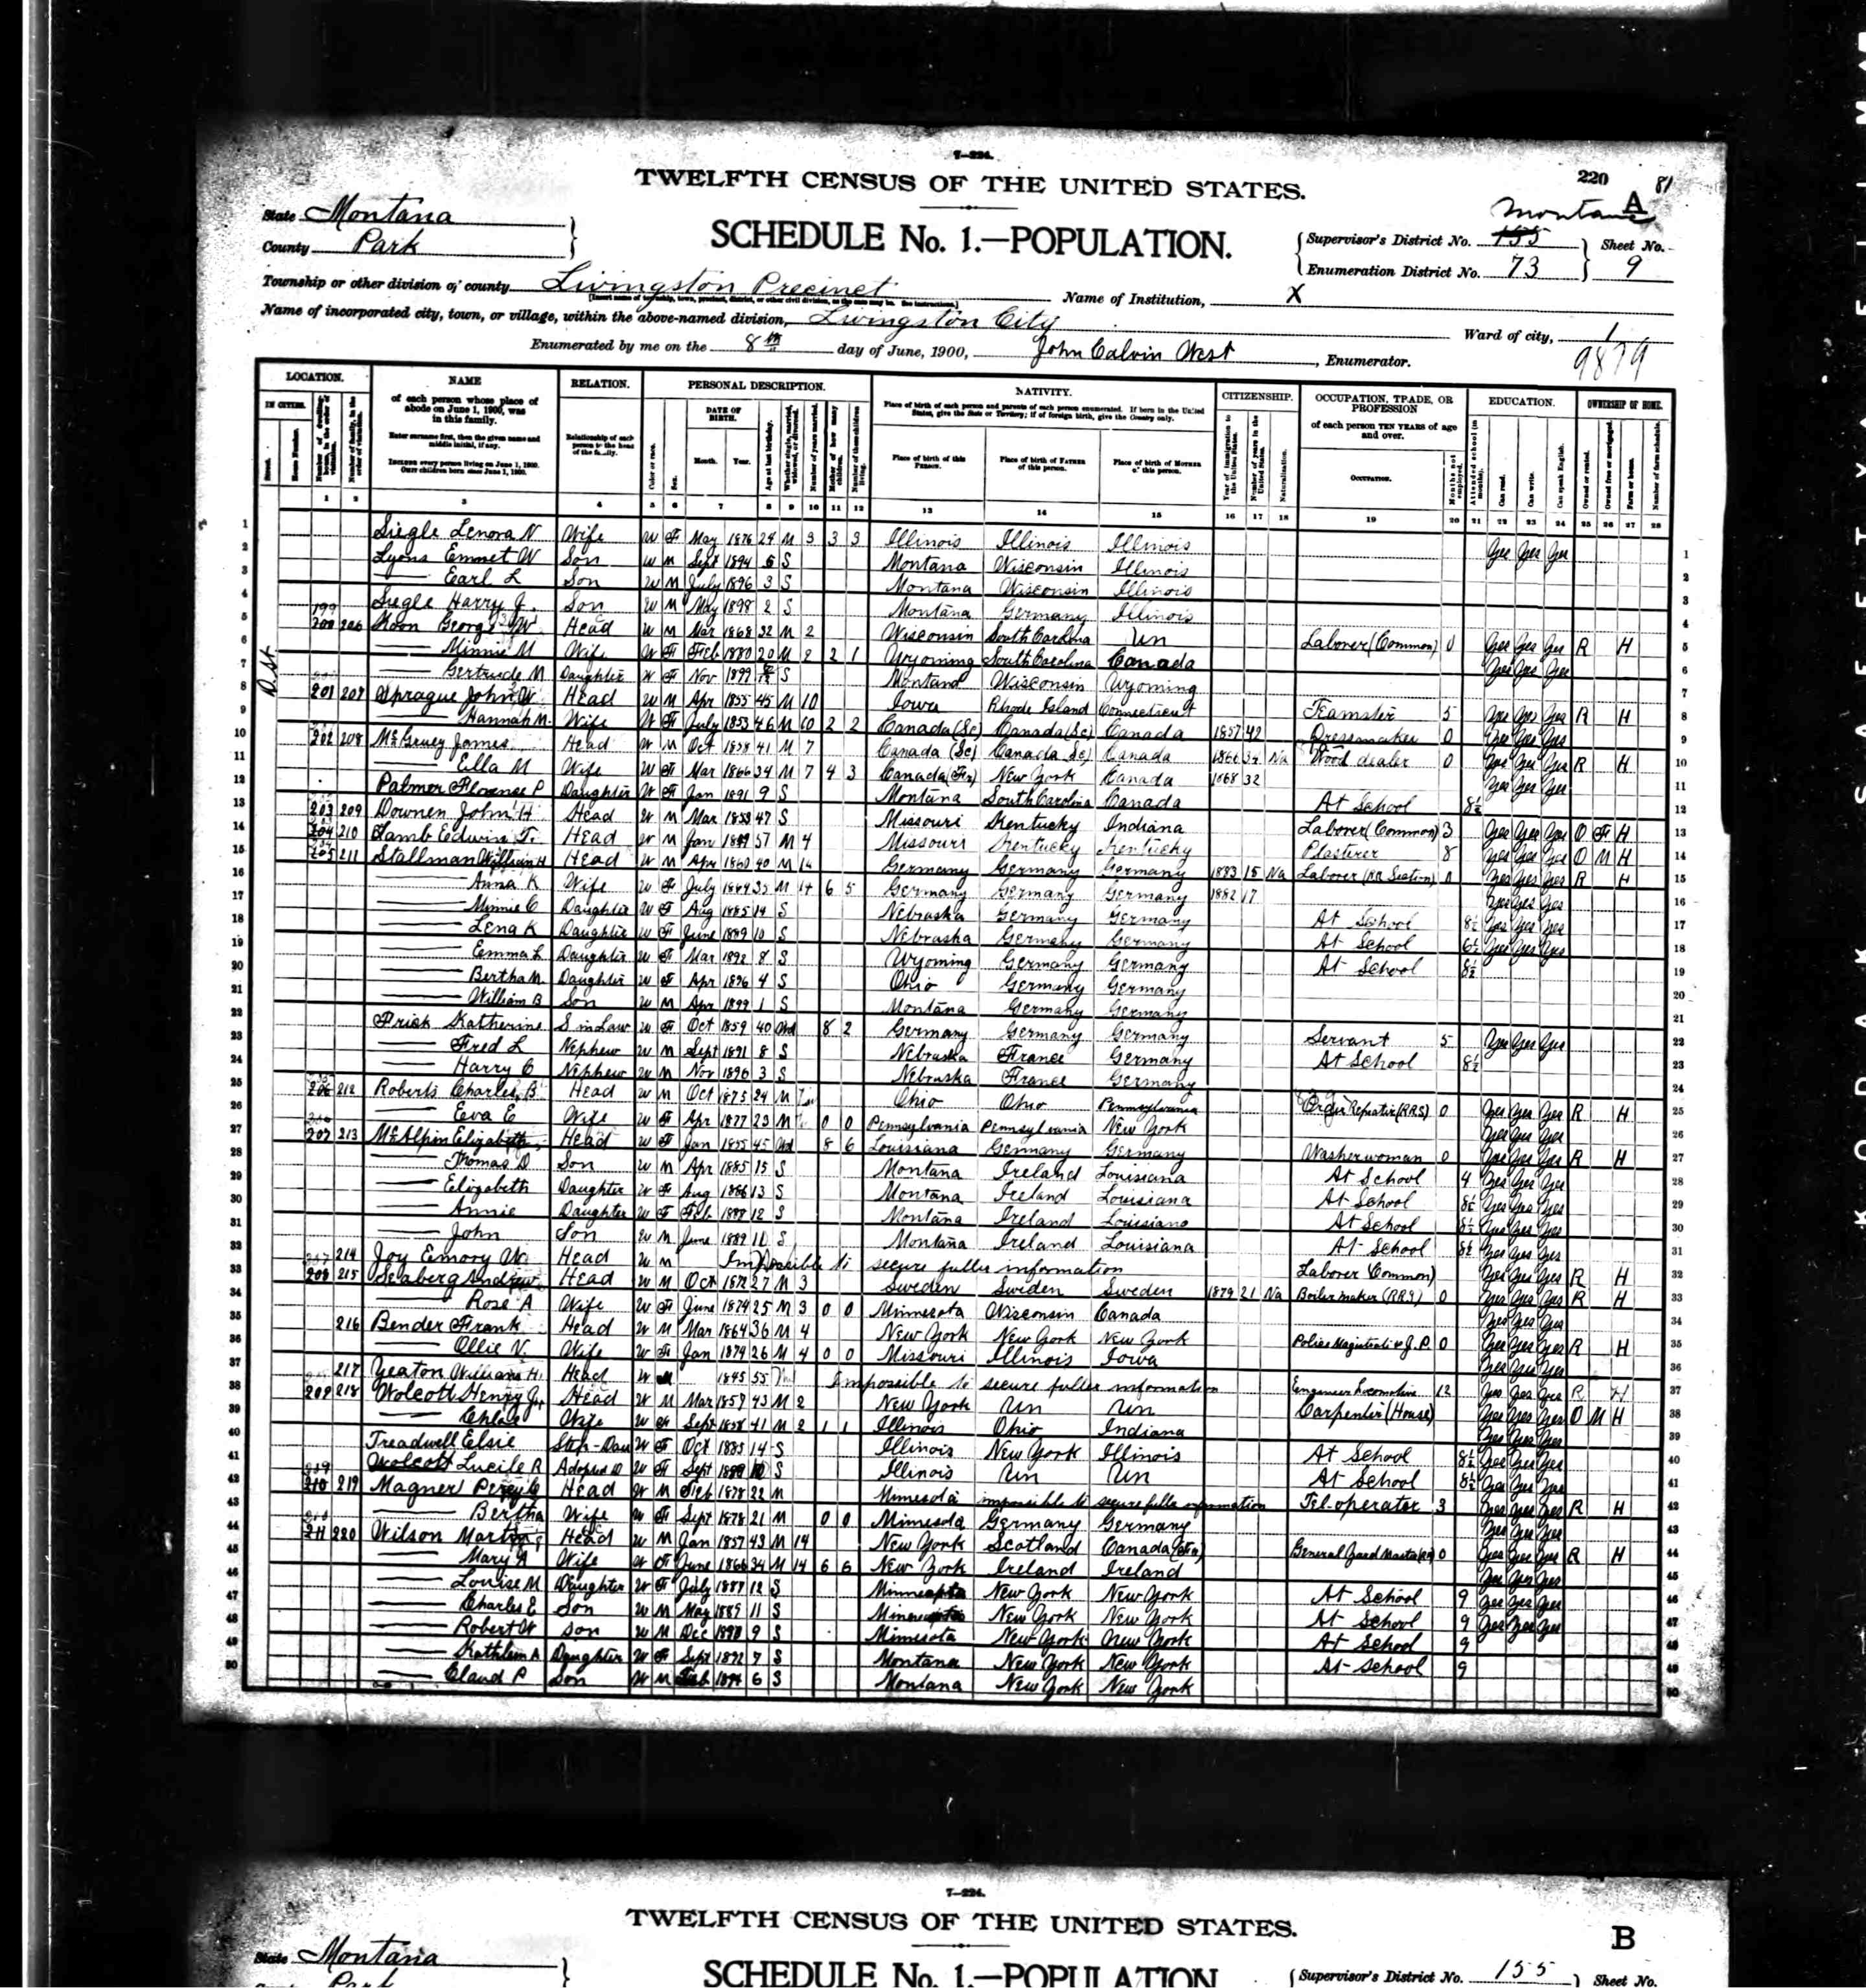 7-224.
TWELFTH CENSUS OF THE UNITED STATES.
220 81
A
State Montana
Montana
SCHEDULE No. 1.—POPULATION.
County Park
Supervisor's District No. 155 Sheet No.
Enumeration District No. 73 9
Township or other division of county Livingston Precinct Name of Institution, X
Name of incorporated city, town, or village, within the above-named division, Livingston City Ward of city, 1
Enumerated by me on the 8th day of June, 1900, John Calvin West, Enumerator.
9879
LOCATION. NAME RELATION. PERSONAL DESCRIPTION. NATIVITY. CITIZENSHIP. OCCUPATION, TRADE, OR PROFESSION EDUCATION. OWNERSHIP OF HOME.
IN CITIES. of each person whose place of abode on June 1, 1900, was in this family. DATE OF BIRTH. of each person TEN YEARS of age and over.
Enter surname first, then the given name and middle initial, if any.
INCLUDE every person living on June 1, 1900. OMIT children born since June 1, 1900.
Place of birth of this PERSON. Place of birth of FATHER of this person. Place of birth of MOTHER of this person. OCCUPATION.
1 2 3 4 5 6 7 8 9 10 11 12 13 14 15 16 17 18 19 20 21 22 23 24 25 26 27 28
D St
1 Siegle Lenora N Wife W F May 1876 24 M 3 3 3 Illinois Illinois Illinois Yes Yes Yes 1
2 Lyons Emmet W Son W M Sept 1894 5 S Montana Wisconsin Illinois 2
3 — Earl L Son W M July 1896 3 S Montana Wisconsin Illinois 3
4 Siegle Harry J. Son W M May 1898 2 S Montana Germany Illinois 4
5 200 206 Koon George W Head W M Mar 1868 32 M 2 Wisconsin South Carolina Un Laborer (Common) 0 Yes Yes Yes R H 5
6 — Minnie M Wife W F Feb 1880 20 M 2 2 1 Wyoming South Carolina Canada Yes Yes Yes 6
7 — Gertrude M Daughter W F Nov 1899 S Montana Wisconsin Wyoming 7
8 201 207 Sprague John W Head W M Apr 1855 45 M 10 Iowa Rhode Island Connecticut Teamster 5 Yes Yes Yes R H 8
9 — Hannah M. Wife W F July 1853 46 M 10 2 2 Canada (Sc) Canada (Sc) Canada 1857 42 Dressmaker 0 Yes Yes Yes 9
10 202 208 James Head W M Oct 1858 41 M 7 Canada (Sc) Canada (Sc) Canada 1866 34 Na Wood dealer 0 Yes Yes Yes R H 10
11 — Ella M Wife W F Mar 1866 34 M 7 4 3 Canada (Fr) New York Canada 1868 32 Yes Yes Yes 11
12 Palmer Florence P Daughter W F Jan 1891 9 S Montana South Carolina Canada At School 8½ 12
13 203 209 Downen John H Head W M Mar 1853 47 S Missouri Kentucky Indiana Laborer (Common) 3 Yes Yes Yes O F H 13
14 204 210 Lamb Edwin T. Head W M Jan 57 M 4 Missouri Kentucky Kentucky Plasterer 8 Yes Yes Yes O M H 14
15 205 211 Stallman William H Head W M Apr 1860 40 M 14 Germany Germany Germany 1883 15 Na Laborer (RR Section) 0 Yes Yes Yes R H 15
16 — Anna K Wife W F July 1864 35 M 14 6 5 Germany Germany Germany 1882 17 Yes Yes Yes 16
17 — Minnie C Daughter W F Aug 1885 14 S Nebraska Germany Germany At School 8½ Yes Yes Yes 17
18 — Lena K Daughter W F June 1889 10 S Nebraska Germany Germany At School 6½ Yes Yes Yes 18
19 — Emma L Daughter W F Mar 1892 8 S Wyoming Germany Germany At School 8½ 19
20 — Bertha M Daughter W F Apr 1896 4 S Ohio Germany Germany 20
21 — William B Son W M Apr 1899 1 S Montana Germany Germany 21
22 Frick Katherine S in Law W F Oct 1859 40 Wd 8 2 Germany Germany Germany Servant 5 Yes Yes Yes 22
23 — Fred L Nephew W M Sept 1891 8 S Nebraska France Germany At School 8½ 23
24 — Harry C Nephew W M Nov 1896 3 S Nebraska France Germany 24
25 206 212 Roberts Charles B Head W M Oct 1875 24 M Ohio Ohio Pennsylvania (RRS) 0 Yes Yes Yes R H 25
26 — Eva E Wife W F Apr 1877 23 M 0 0 Pennsylvania Pennsylvania New York Yes Yes Yes 26
27 207 213 McAlpin Elizabeth Head W F Jan 1855 45 Wd 8 6 Louisiana Germany Germany Washerwoman 0 Yes Yes Yes R H 27
28 — Thomas D Son W M Apr 1885 15 S Montana Ireland Louisiana At School 4 Yes Yes Yes 28
29 — Elizabeth Daughter W F Aug 1886 13 S Montana Ireland Louisiana At School 8½ Yes Yes Yes 29
30 — Annie Daughter W F Feb 1888 12 S Montana Ireland Louisiana At School 8½ Yes Yes Yes 30
31 — John Son W M June 1889 11 S Montana Ireland Louisiana At School 8½ Yes Yes Yes 31
32 214 Joy Emory W. Head W M Impossible to secure fuller information Laborer (Common) Yes Yes Yes R H 32
33 208 215 Seaberg Andrew Head W M Oct 1872 27 M 3 Sweden Sweden Sweden 1879 21 Na Boiler maker (RRS) 0 Yes Yes Yes R H 33
34 — Rose A Wife W F June 1874 25 M 3 0 0 Minnesota Wisconsin Canada Yes Yes Yes 34
35 216 Bender Frank Head W M Mar 1864 36 M 4 New York New York New York Police Magistrate & J.P. 0 Yes Yes Yes R H 35
36 — Ollie V. Wife W F Jan 1874 26 M 4 0 0 Missouri Illinois Iowa Yes Yes Yes 36
37 217 Yeaton William H. Head W M 1845 55 Impossible to secure fuller information Engineer Locomotive 12 Yes Yes Yes R H 37
38 209 218 Wolcott Henry Head W M Mar 1857 43 M 2 New York Un Un Carpenter (House) Yes Yes Yes O M H 38
39 — Wife W F Sept 1858 41 M 2 1 1 Illinois Ohio Indiana Yes Yes Yes 39
40 Treadwell Elsie Step-Dau W F Oct 1885 14 S Illinois New York Illinois At School 8½ Yes Yes Yes 40
41 Wolcott Lucile R Adopted D W F Sept 10 S Illinois Un Un At School 8½ Yes Yes Yes 41
42 210 219 Magner Percy C Head W M Feb 1878 22 M Minnesota impossible to secure fuller information Tel. operator 3 Yes Yes Yes R H 42
43 — Bertha Wife W F Sept 1878 21 M 0 0 Minnesota Germany Germany Yes Yes Yes 43
44 211 220 Wilson Head W M Jan 1857 43 M 14 New York Scotland Canada (Fr) General Yard Master 0 Yes Yes Yes R H 44
45 — Mary A Wife W F June 1866 34 M 14 6 6 New York Ireland Ireland Yes Yes Yes 45
46 — Louise M Daughter W F July 12 S Minnesota New York New York At School 9 Yes Yes Yes 46
47 — Charles E Son W M May 1889 11 S Minnesota New York New York At School 9 Yes Yes Yes 47
48 — Robert W Son W M Dec 1890 9 S Minnesota New York New York At School 9 48
49 — Kathleen A Daughter W F Sept 1892 7 S Montana New York New York At School 9 49
50 — Claud P Son W M Feb 1894 6 S Montana New York New York 50
7-224.
TWELFTH CENSUS OF THE UNITED STATES.
B
State Montana
SCHEDULE No. 1.—POPULATION
Supervisor's District No. 155 Sheet No.
Park